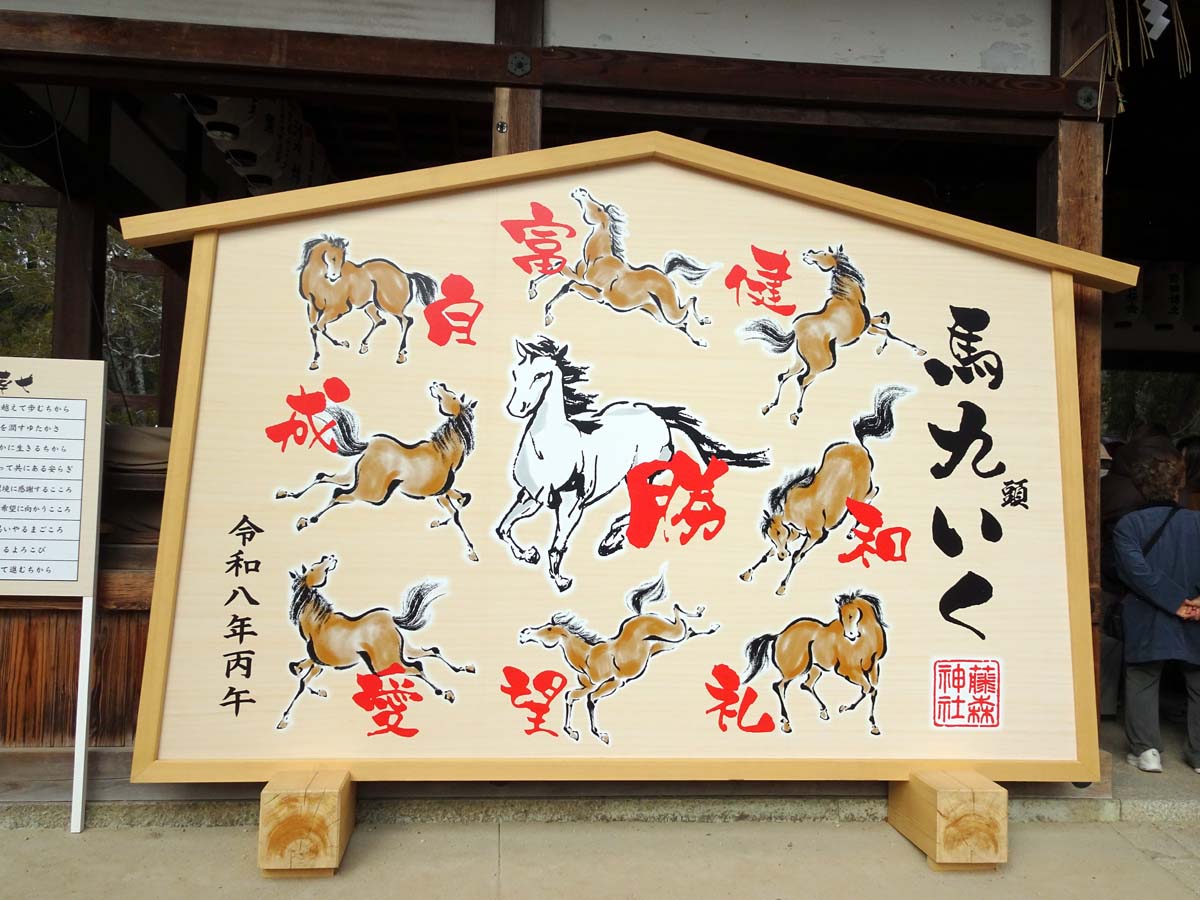 馬九頭いく
藤森
神社
富
健
自
成
勝
和
愛
望
礼
令和八年丙午
越えて歩むちから
を潤すゆたかさ
かに生きるちから
って共にある安らぎ
境に感謝するこころ
希望に向かうこころ
いやるまごころ
るよろこび
て進むちから